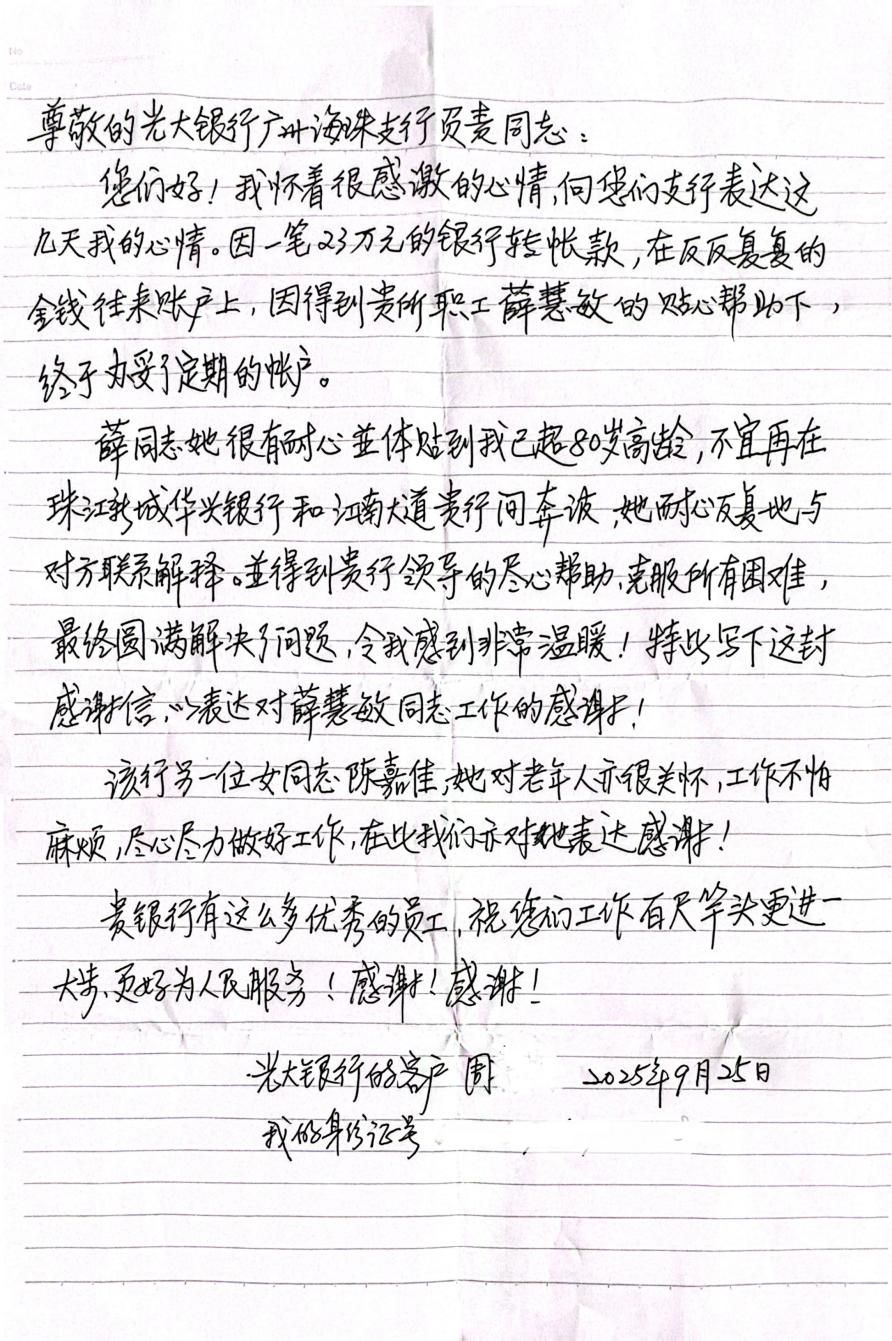 No
Date
尊敬的光大银行广州海珠支行负责同志：
您们好！我怀着很感激的心情，向您们支行表达这
几天我的心情。因一笔23万元的银行转帐款，在反反复复的
金钱往来账户上，因得到贵所职工薛慧敏的贴心帮助下，
终于办妥了定期的帐户。
薛同志她很有耐心並体贴到我已超80岁高龄，不宜再在
珠江新城华兴银行和江南大道贵行间奔波，她耐心反复地与
对方联系解释。並得到贵行领导的尽心帮助，克服所有困难，
最终圆满解决了问题，令我感到非常温暖！特此写下这封
感谢信，以表达对薛慧敏同志工作的感谢！
该行另一位女同志陈嘉佳，她对老年人亦很关怀，工作不怕
麻烦，尽心尽力做好工作，在此我们亦对她表达感谢！
贵银行有这么多优秀的员工，祝您们工作百尺竿头更进一
大步、更好为人民服务！感谢！感谢！
光大银行的客户 周 2025年9月25日
我的身份证号